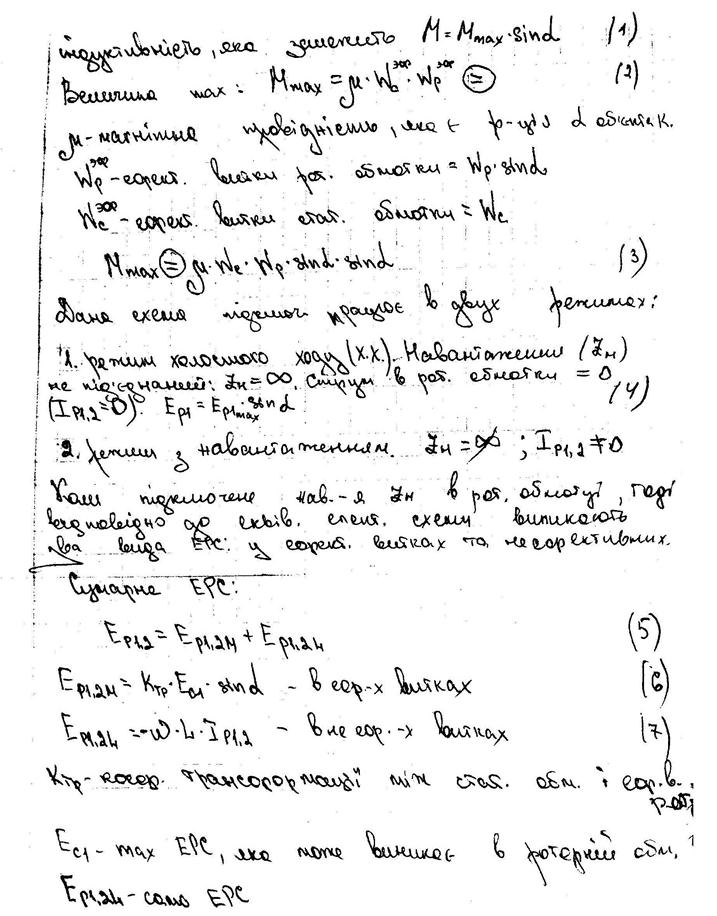 індуктивність, яка залежить M = Mmax·sinα (1)
Величина max: Mmax = μ·Wв^эф·Wр^эф ⊜ (2)
μ - магнітна провідність, яка є ф-ція α об'єктак.
Wр^эф - ефект. витки рот. обмотки = Wр·sinα
Wс^эф - ефект. витки стат. обмотки = Wс
Mmax ⊜ μ·Wс·Wр·sinα·sinα (3)
Дана схема підключ працює в двух режимах:
1. режим холостого ходу (х.х.). Навантаження (Zн)
не під'єднаний: Zн = ∞. Струм в рот. обмотки = 0
(Iр1,2 = 0). Eр1 = Eр1max·sinα (4)
2. режим з навантаженням. Zн = ∞ ; Iр1,2 ≠ 0
Коли підключене нав.-я Zн в рот. обмотці, тоді
відповідно до еквів. елект. схеми виникають
два вида ЕРС: у ефект. витках та неефективних.
Сумарне ЕРС:
Eр1,2 = Eр1,2M + Eр1,2L (5)
Eр1,2M = Kтр·Eс1·sinα - в еф-х витках (6)
Eр1,2L = -ω·L·Iр1,2 - в не еф.-х витках (7)
Kтр - коеф. трансформації між стат. обм. і еф.в.
рот
Eс1 - max ЕРС, яка може виникає в роторній обм.
Eр1,2L - само ЕРС